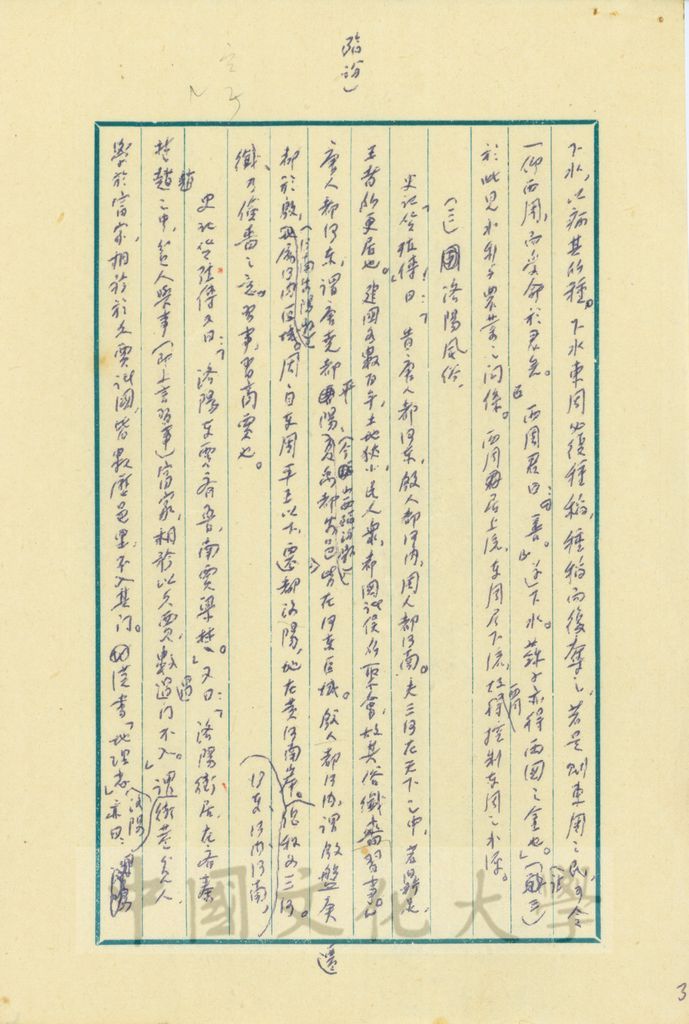 臨汾
下水,以病其所種。下水東周必復種稻,種稻而復奪之,若是則東周之民,可令
一仰西周,而受命於君矣。西周君曰:善。遂下水。蘇子亦得兩國之金也。
於此見水利與農業之關係。西周君居上流,東周居下流,故西周得控制東周之水源。
(三)洛陽風俗
史記貨殖傳曰:昔唐人都河東,殷人都河內,周人都河南。夫三河在天下之中,若鼎足,
王者所更居也。建國各數百千年,土地狹小,民人衆,都國諸侯所聚會,故其俗纖嗇習事。
唐人都河東,謂唐堯都平陽(今山西臨汾縣),夏禹都安邑,皆在河東區域。殷人都河內,謂殷盤庚
都於殷(河南安陽),屬河內區域。周自東周平王以下,遷都洛陽,地在黃河南岸。故為三河。
(河東河內河南)
纖乃儉嗇之意。習事,習商賈也。
史記貨殖傳又曰:洛陽東賈齊魯,南賈梁楚。又曰:洛陽街居在齊秦
楚趙之中,貧人學事(即上言習事)富家,相矜以久賈,數過邑不入門。謂街巷貧人
學於富家,相矜於久賈諸國,皆數歷邑里,不入其門。漢書「地理志」亦曰:(洛陽)
遷
中國文化大學
3